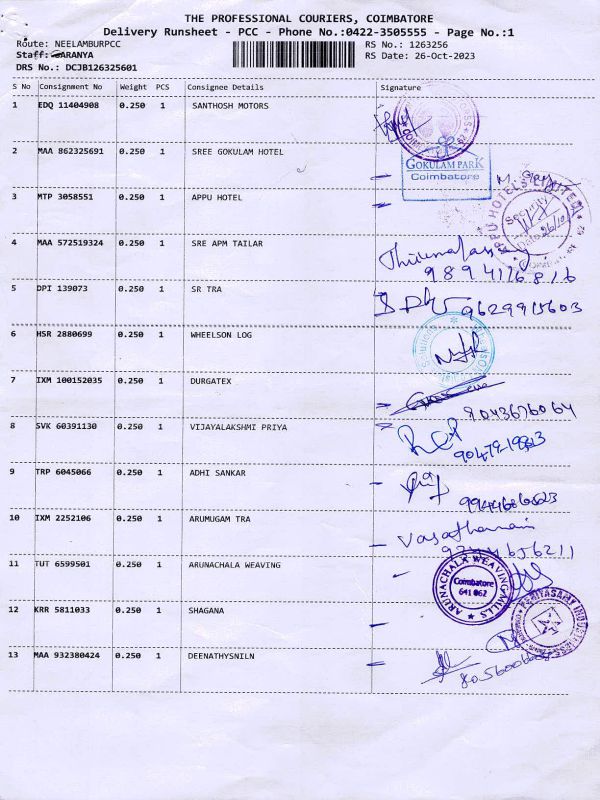 THE PROFESSIONAL COURIERS, COIMBATORE
Delivery Runsheet - PCC - Phone No.:0422-3505555 - Page No.:1
Route: NEELAMBURPCC RS No.: 1263256
Staff: SARANYA RS Date: 26-Oct-2023
DRS No.: DCJB126325601
S No Consignment No Weight PCS Consignee Details Signature
1 EDQ 11404908 0.250 1 SANTHOSH MOTORS
2 MAA 862325691 0.250 1 SREE GOKULAM HOTEL
GOKULAM PARK
Coimbatore
3 MTP 3058551 0.250 1 APPU HOTEL
APPU HOTELS LIMITED
Security
Date 26/10
4 MAA 572519324 0.250 1 SRE APM TAILAR
9894176816
5 DPI 139073 0.250 1 SR TRA
9629915603
6 HSR 2880699 0.250 1 WHEELSON LOG
7 IXM 100152035 0.250 1 DURGATEX
9043676064
8 SVK 60391130 0.250 1 VIJAYALAKSHMI PRIYA
9 TRP 6045066 0.250 1 ADHI SANKAR
10 IXM 2252106 0.250 1 ARUMUGAM TRA
11 TUT 6599501 0.250 1 ARUNACHALA WEAVING
ARUNACHALA WEAVING MILLS
Coimbatore
641 062
12 KRR 5811033 0.250 1 SHAGANA
13 MAA 932380424 0.250 1 DEENATHYSNILN